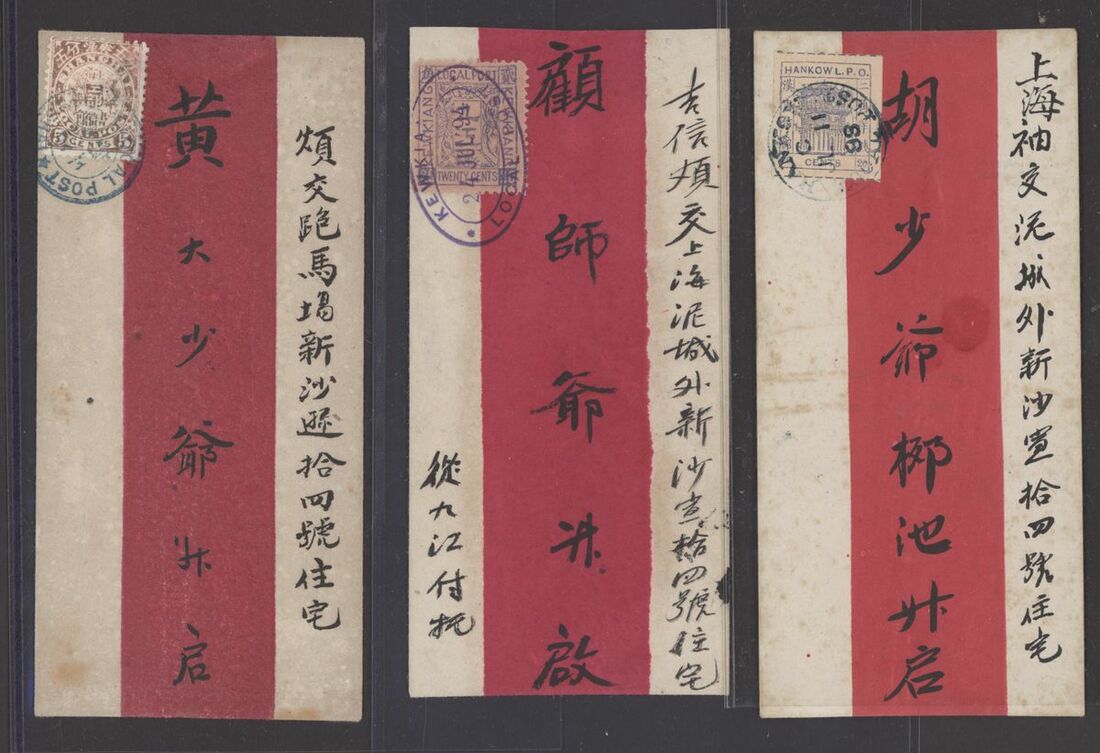 煩交跑馬場新沙遜拾四號住宅
黃大少爺升启
五分
SHANGHAI
5 CENTS
LOCAL POST
吉信煩交上海泥城外新沙壹拾四號住宅
顧師爺升啟
從九江付托
LOCAL POST
KEWKIANG
TWENTY CENTS
KEWKIANG
LOCAL POST
24 JUL 94
上海袖交泥城外新沙壹拾四號住宅
胡少爺梛池升启
HANKOW L.P.O.
漢
CENTS
20